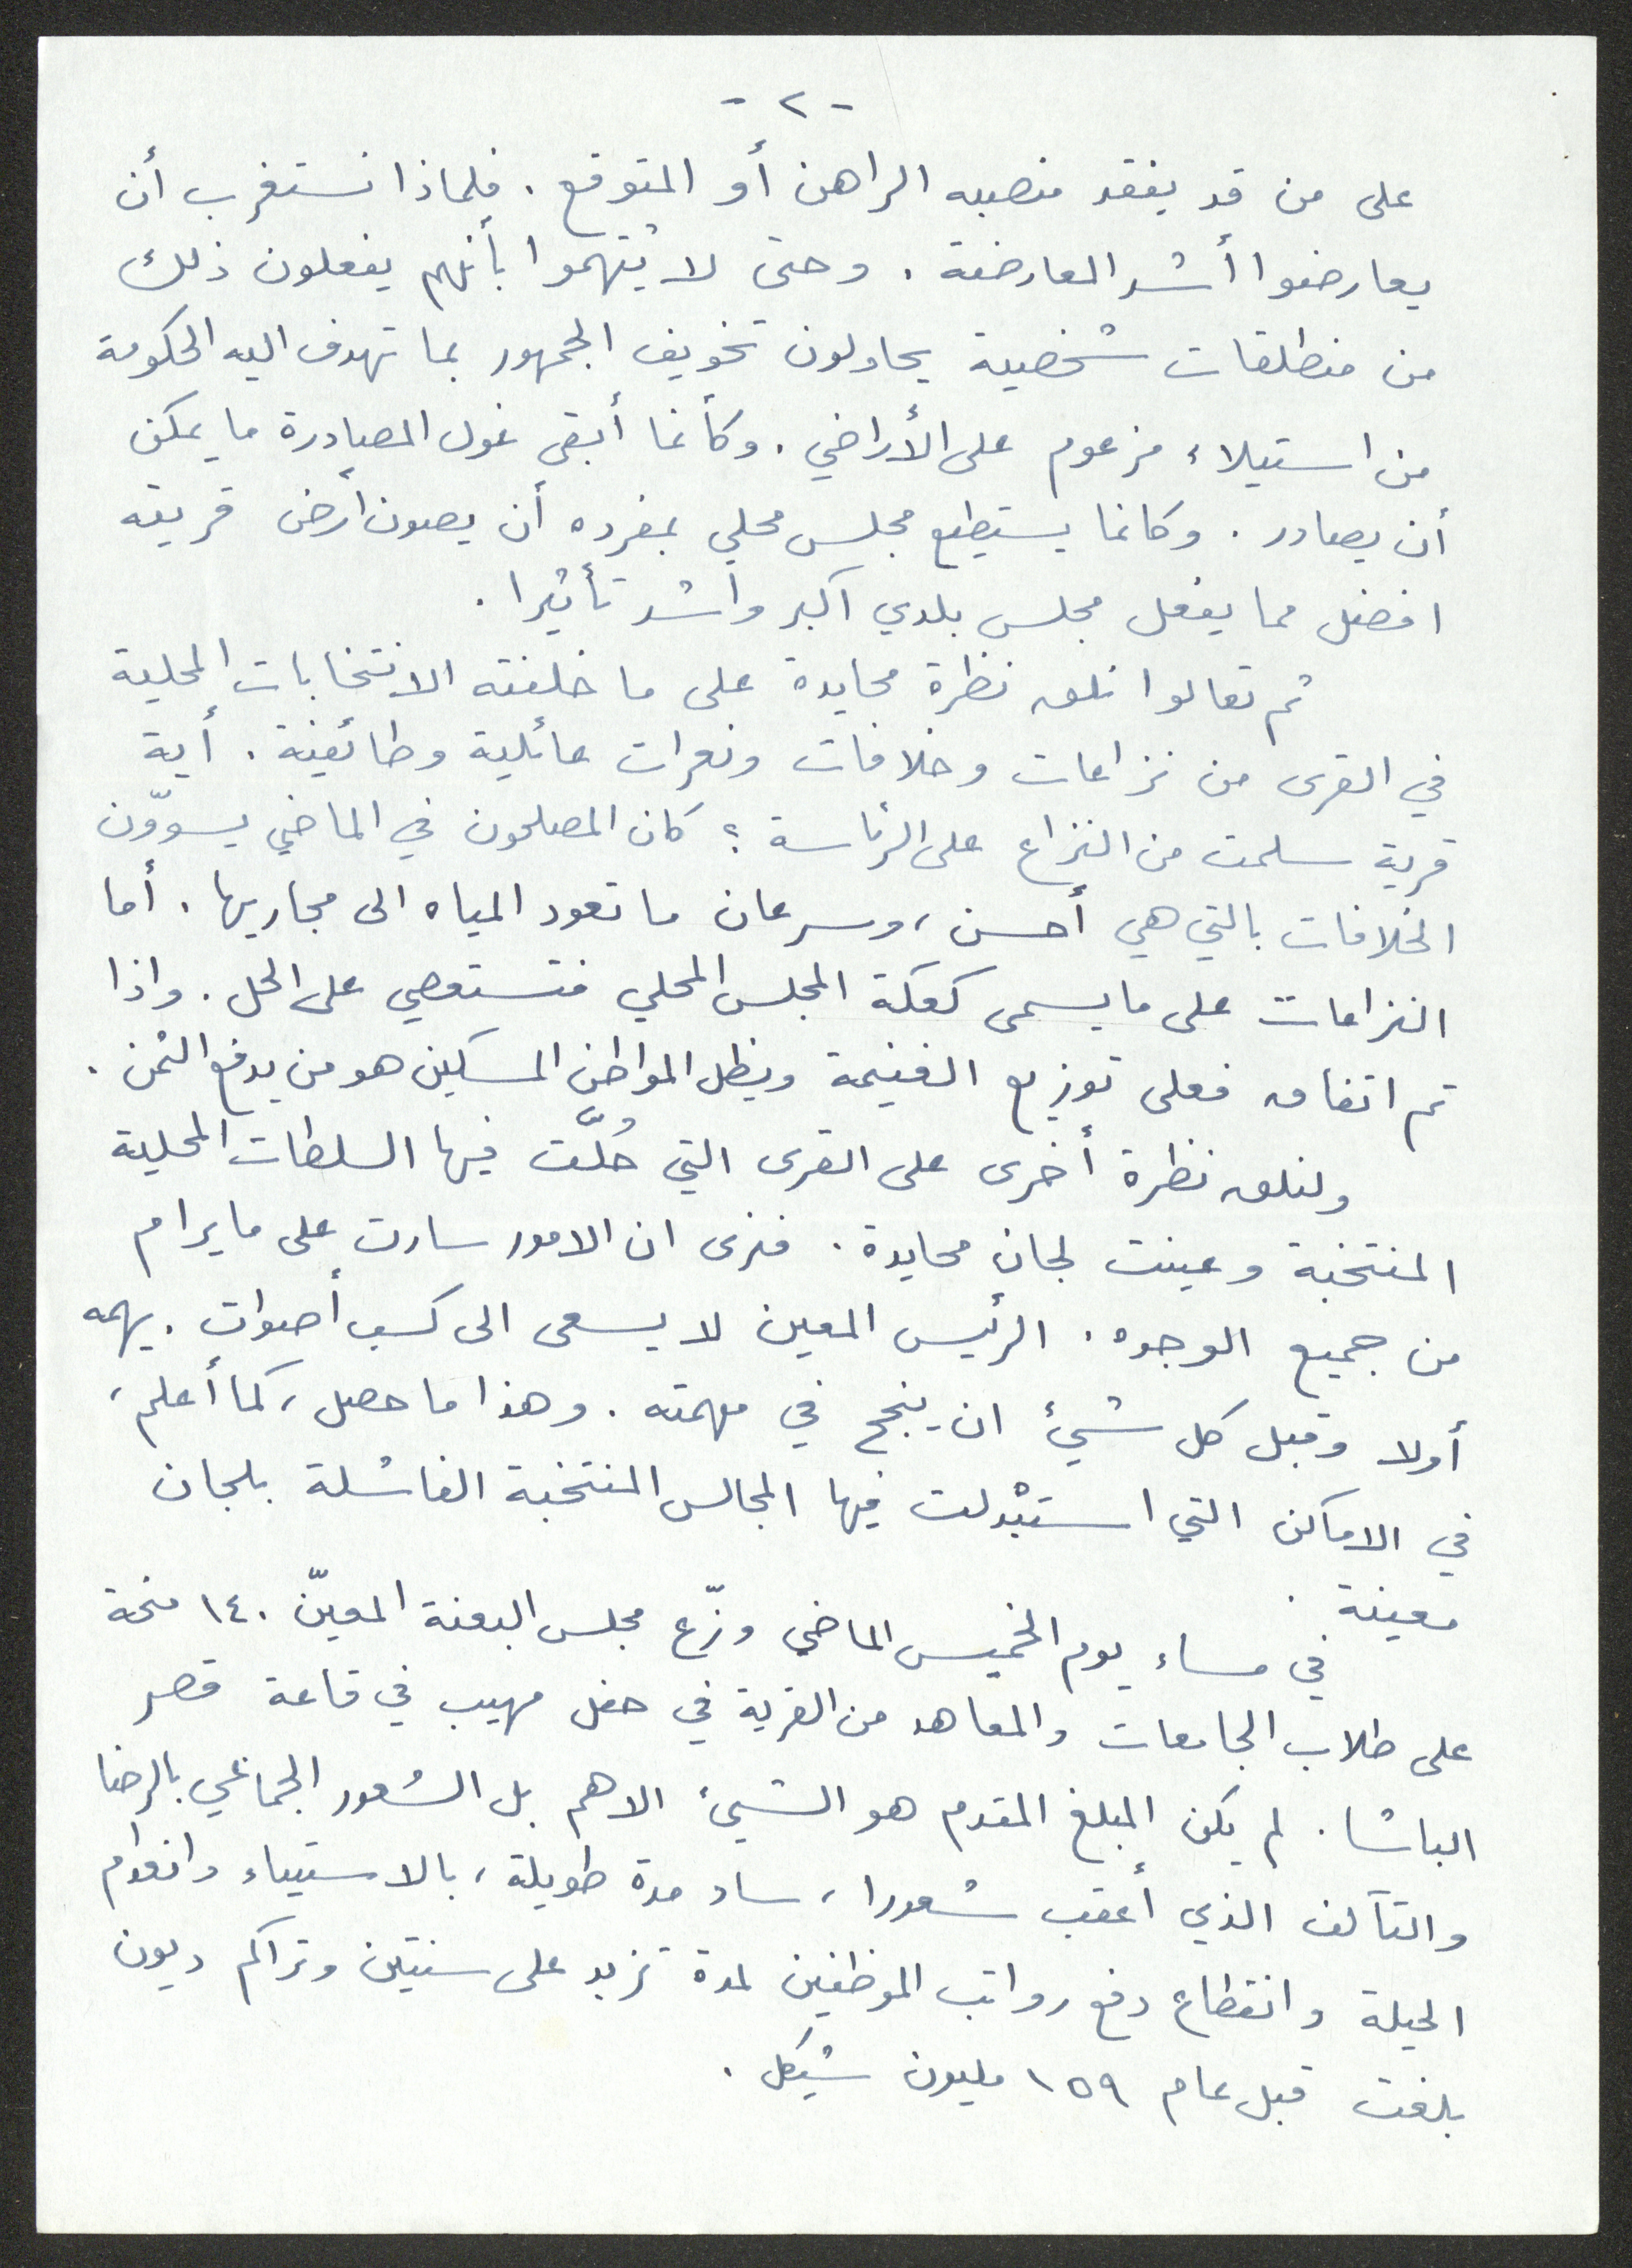 - ٢ -
على من قد يفقد منصبه الراهن أو المتوقع. فلماذا نستغرب أن
يعارضوا أشد المعارضة. وحتى لا يُتهموا بأنهم يفعلون ذلك
من منطلقات شخصية يحاولون تخويف الجمهور بما تهدف اليه الحكومة
من استيلاء مزعوم على الأراضي. وكأنما أبقى غول المصادرة ما يمكن
أن يصادر. وكانما يستطيع مجلس محلي بمفرده أن يصون أرض قريته
افضل مما يفعل مجلس بلدي اكبر واشد تأثيرا.
ثم تعالوا نلق نظرة محايدة على ما خلفته الانتخابات المحلية
في القرى من نزاعات وخلافات ونعرات عائلية وطائفية. أية
قرية سلمت من النزاع على الرئاسة؟ كان المصلحون في الماضي يسوّون
الخلافات بالتي هي أحسن، وسرعان ما تعود المياه الى مجاريها. أما
النزاعات على ما يسمى كعكة المجلس المحلي فتستعصي على الحل. واذا
تم اتفاق فعلى توزيع الغنيمة ويظل المواطن المسكين هو من يدفع الثمن.
ولنلق نظرة أخرى على القرى التي حُلّت فيها السلطات المحلية
المنتخبة وعينت لجان محايدة. فنرى ان الامور سارت على ما يرام
من جميع الوجوه. الرئيس المعين لا يسعى الى كسب أصوات. يهمه
أولا وقبل كل شيئ ان ينجح في مهمته. وهذا ما حصل، كما أعلم،
في الاماكن التي استبْدلت فيها المجالس المنتخبة الفاشلة بلجان
معينة.
في مساء يوم الخميس الماضي وزّع مجلس البعنة المعيّن ١٤٠ منحة
على طلاب الجامعات والمعاهد من القرية في حفل مهيب في قاعة قصر
الباشا. لم يكن المبلغ المقدم هو الشيئ الاهم بل الشعور الجماعي بالرضا
والتآلف الذي أعقب شعورا، ساد مدة طويلة، بالاستياء وانعدام
الحيلة وانقطاع دفع رواتب الموظفين لمدة تزيد على سنتين وتراكم ديون
بلغت قبل عام ١٥٩ مليون شيكل.